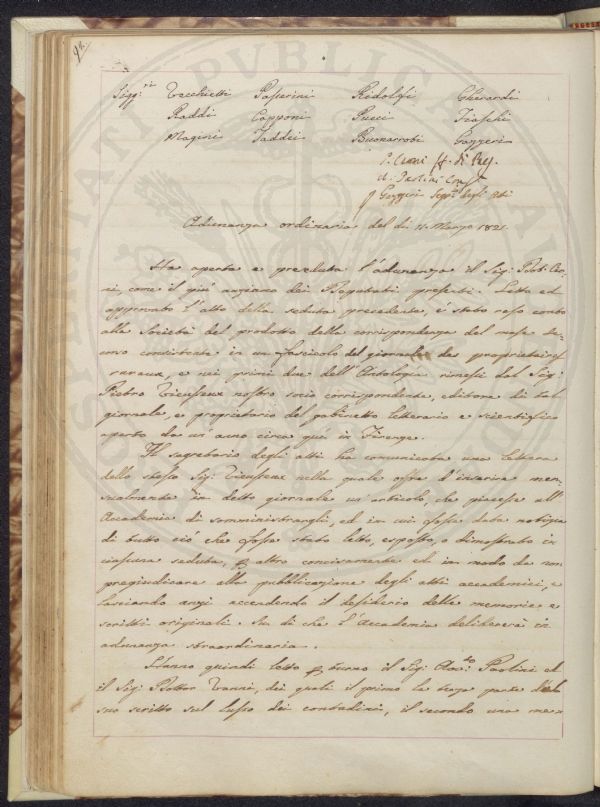 92.
Sigg.ri Vecchietti Passerini Ridolfi Gherardi
Raddi Capponi Pucci Fiaschi
Magini Taddei Buonarroti Gazzeri
di
Gazzeri Seg.rio degli Atti
Adunanza ordinaria del dì 11. Marzo 1821.
Ha aperta e preseduta l'adunanza il Sig:
come il più anziano dei presenti. Letto ed
approvato l'atto della seduta precedente, è stato reso conto
alla Società del prodotto della corrispondenza del mese de-
corso consistente in un fascicolo del giornale des proprietaires
ruraux, e nei primi due dell'Antologia rimessi dal Sig:
Pietro Vieusseux nostro socio corrispondente, editore di tal
giornale, e proprietario del gabinetto letterario e scientifico
aperto da un anno circa quì in Firenze.
Il segretario degli atti ha comunicata una lettera
dello stesso Sig: Vieusseux nella quale offre d'inserire men-
sualmente in detto giornale un articolo, che piacesse all'
Accademia di somministrargli, ed in cui fosse data notizia
di tutto ciò che fosse stato letto, esposto, o dimostrato in
ciascuna seduta, altro concisamente ed in modo da non
pregiudicare alla pubblicazione degli atti accademici, e
lasciando anzi accendendo il desiderio delle memorie e
scritti originali. Su di che l'Accademia delibererà in
adunanza straordinaria.
Hanno quindi letto p turno il Sig: Paolini ed
il Sig: Dottor Vanni, dei quali il primo la terza parte del
suo scritto sul lusso dei contadini, il secondo una me-